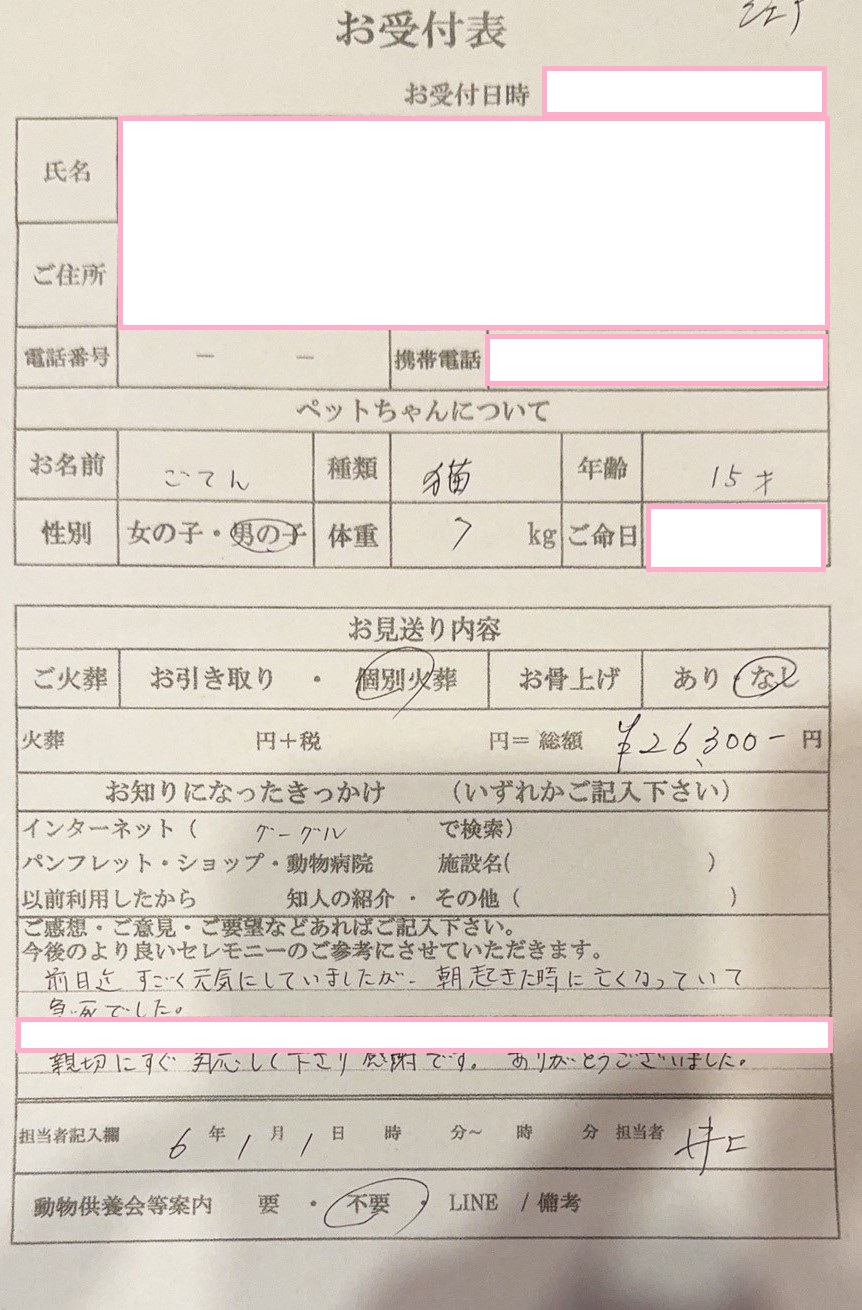 お受付表
お受付日時
氏名
ご住所
電話番号 － － 携帯電話
ペットちゃんについて
お名前 ごてん 種類 猫 年齢 15才
性別 女の子・男の子 体重 7 kg ご命日
お見送り内容
ご火葬 お引き取り ・ 個別火葬 お骨上げ あり・なし
火葬 円＋税 円＝ 総額 ¥26,300- 円
お知りになったきっかけ （いずれかご記入下さい）
インターネット（ グーグル で検索）
パンフレット・ショップ・動物病院 施設名( )
以前利用したから 知人の紹介 ・ その他（ ）
ご感想・ご意見・ご要望などあればご記入下さい。
今後のより良いセレモニーのご参考にさせていただきます。
前日迄 すごく元気にしていましたが、朝起きた時に亡くなっていて
急死でした。
親切にすぐ 対応して下さり感謝です。 ありがとうございました。
担当者記入欄 6 年 1 月 1 日 時 分～ 時 分 担当者 井上
動物供養会等案内 要 ・ 不要 ・ LINE / 備考